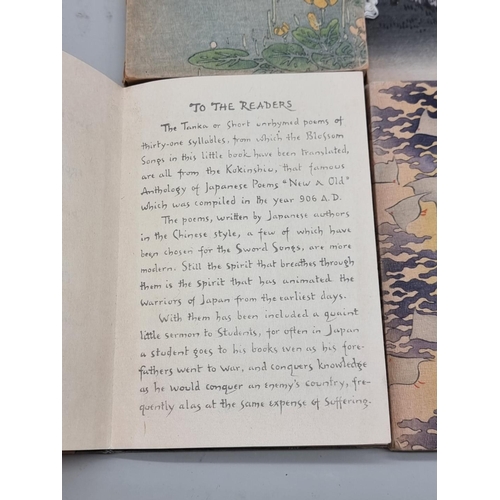 TO THE READERS
The Tanka or Short unrhymed poems of
thirty-one syllables, from which the Blossom
Songs in this little book have been translated,
are all from the Kokinshiu, that famous
Anthology of Japanese Poems "New & Old"
which was compiled in the year 906 A.D.
The poems, written by Japanese authors
in the Chinese style, a few of which have
been chosen for the Sword Songs, are more
modern. Still the spirit that breathes through
them is the spirit that has animated the
warriors of Japan from the earliest days.
With them has been included a quaint
little sermon to Students, for often in Japan
a student goes to his books even as his fore-
fathers went to war, and conquers knowledge
as he would conquer an enemy's country, fre-
quently alas at the same expense of Suffering.